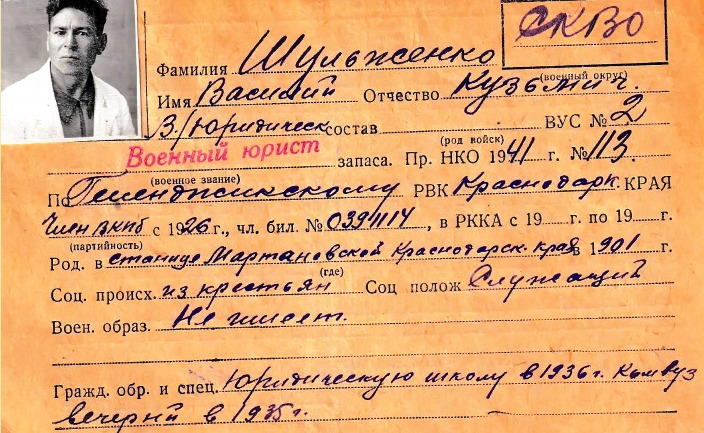 СКВО
(военный округ)
Фамилия Шульженко
Имя Василий Отчество Кузьмич.
3./Юридическ состав ВУС № 2
(род войск)
Военный юрист запаса. Пр. НКО 1941 г. № 113.
(военное звание)
По Геленджикскому РВК Краснодарк. КРАЯ
Член ВКПб с 1926 г., чл. бил. № 0391114, в РККА с 19 г. по 19 г.
(партийность)
Род. в станице Мартановской Краснодарск. края в 1901 г.
(где)
Соц. происх. из крестьян Соц полож Служащий
Воен. образ. Не имеет.
Гражд. обр. и спец. Юридическую школу в 1936 г. Комвуз
вечерний в 1935 г.